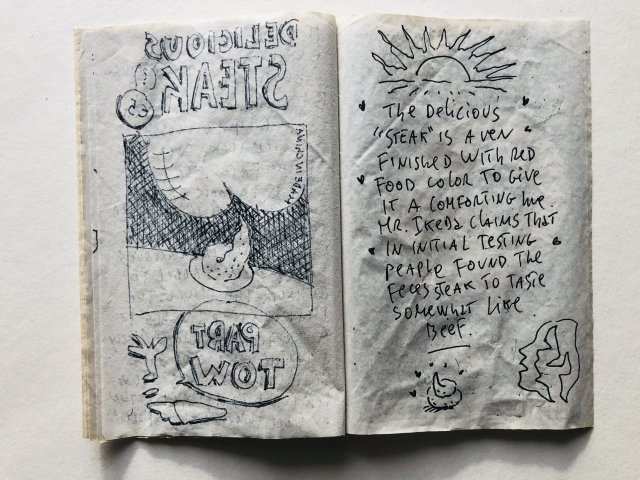 DELICIOUS
STEAK
35
PART
The Delicious
"STEAK" is AVEN
FINISHED WITH RED
FOOD COLOR TO GIVE
IT A COMFORTING hue.
MR. IKEDA CLAIMS THAT
IN INITIAL TESTING
PEAPLE FOUND THE
FECES STEAK TO TASTE
SOMEWHAT LIKE
BEEF